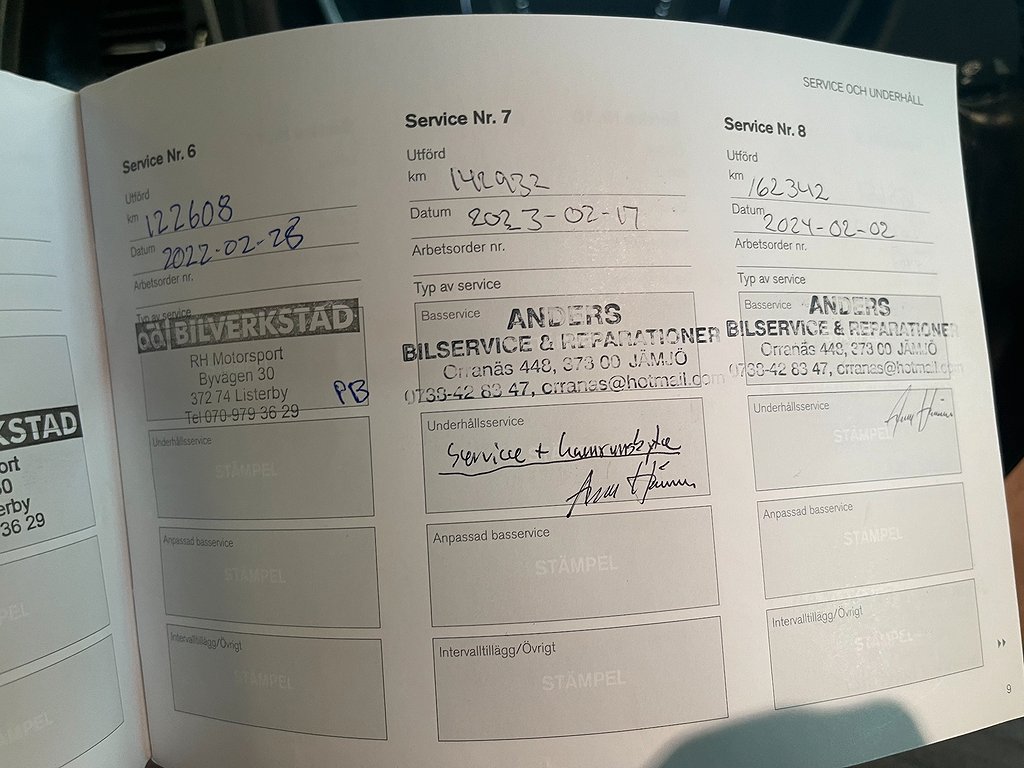 SERVICE OCH UNDERHÅLL
Service Nr. 6
Utförd
km 122608
Datum 2022-02-28
Arbetsorder nr.
Typ av service
ad BILVERKSTAD
RH Motorsport
Byvägen 30
372 74 Listerby
PB
Tel 070-979 36 29
Underhållsservice
STÄMPEL
Anpassad basservice
STÄMPEL
Intervalltillägg/Övrigt
STÄMPEL
Service Nr. 7
Utförd
km 142932
Datum 2023-02-17
Arbetsorder nr.
Typ av service
Basservice
ANDERS
BILSERVICE & REPARATIONER
Orranäs 448, 373 00 JÄMJÖ
0733-42 83 47, orranas@hotmail.com
Underhållsservice
Service + kamremsbyte
Anpassad basservice
STÄMPEL
Intervalltillägg/Övrigt
STÄMPEL
Service Nr. 8
Utförd
km 162342
Datum 2024-02-02
Arbetsorder nr.
Typ av service
Basservice
ANDERS
BILSERVICE & REPARATIONER
Orranäs 448, 373 00 JÄMJÖ
0733-42 83 47, orranas@hotmail.com
Underhållsservice
STÄMPEL
Anpassad basservice
STÄMPEL
Intervalltillägg/Övrigt
STÄMPEL
9
KSTAD
ort
30
erby
36 29
PEL
STÄMPEL